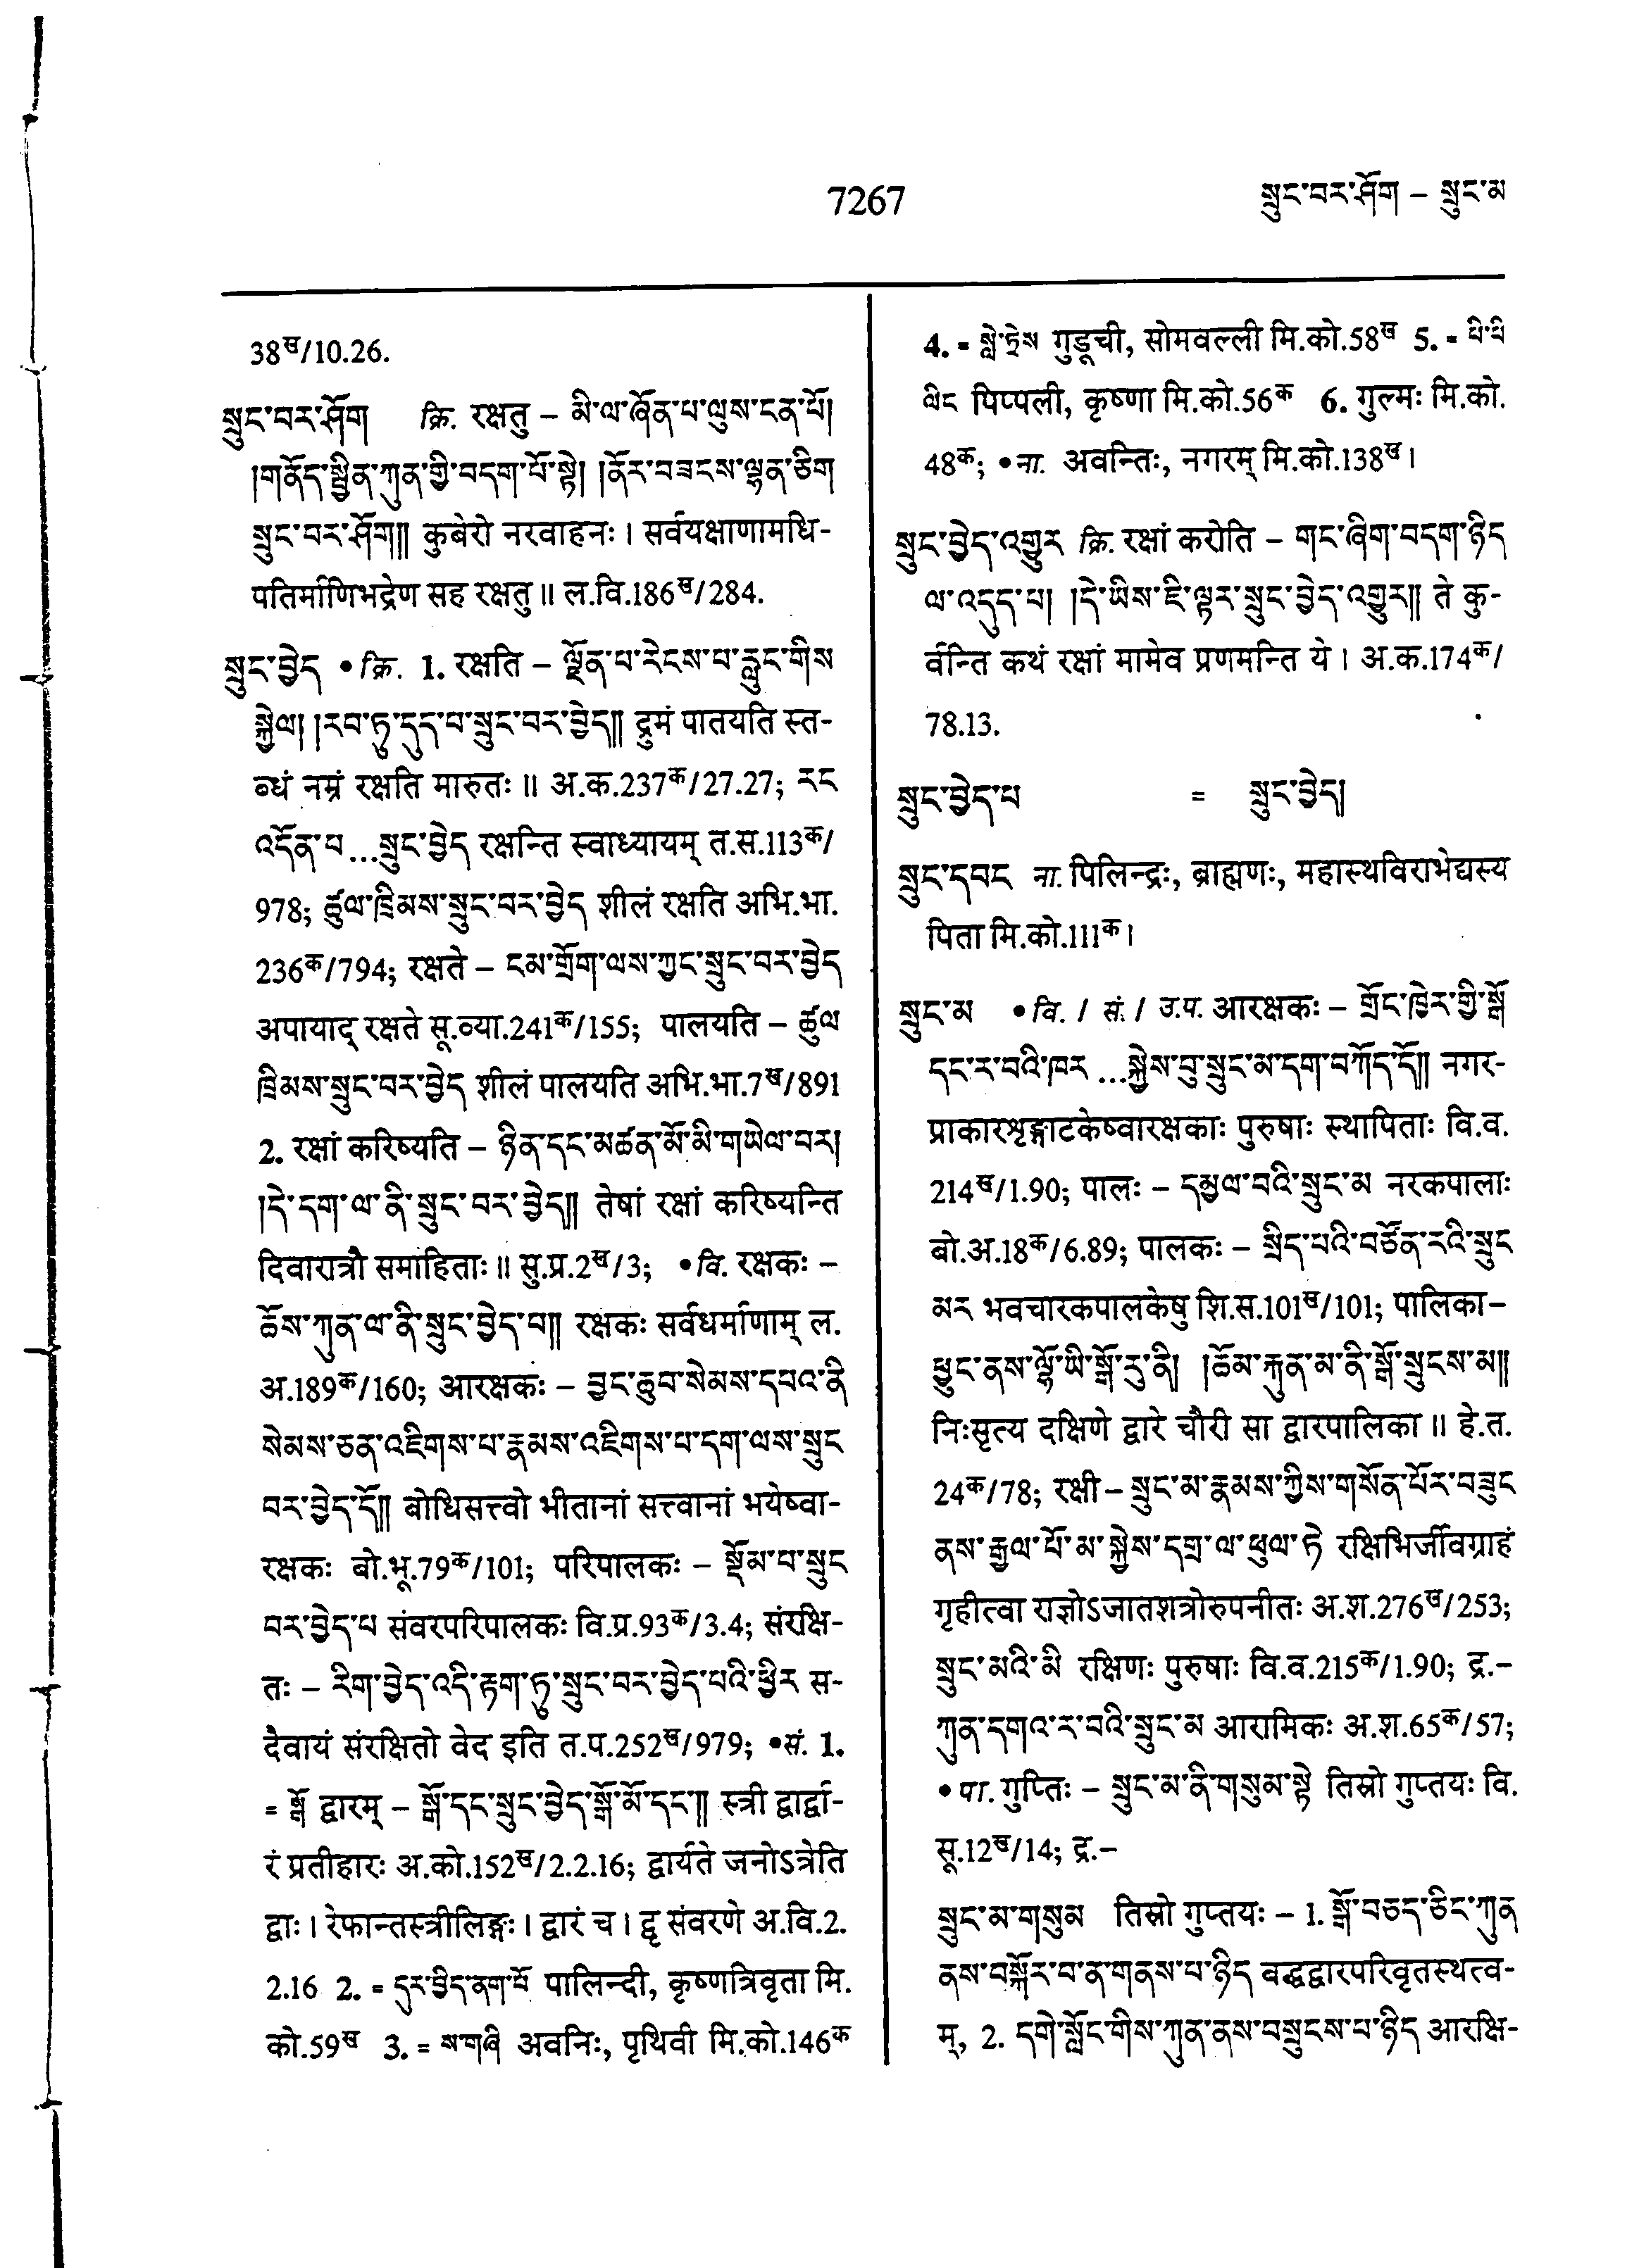 7267
སྲུང་བར་ཤོག – སྲུང་མ
38ख/10.26.
སྲུང་བར་ཤོག क्रि. रक्षतु – མི་ལ་ཞོན་པ་ལུས་ངན་པོ།
།གནོད་སྦྱིན་ཀུན་གྱི་བདག་པོ་སྟེ། །ནོར་བཟངས་ལྷན་ཅིག
སྲུང་བར་ཤོག།། कुबेरो नरवाहनः । सर्वयक्षाणामधि-
पतिर्माणिभद्रेण सह रक्षतु ॥ ल.वि.186ख/284.
སྲུང་བྱེད •क्रि. 1. रक्षति – ལྗོན་པ་རེངས་པ་རླུང་གིས
སྐྱེལ། །རབ་ཏུ་དུད་པ་སྲུང་བར་བྱེད།། द्रुमं पातयति स्त-
ब्धं नम्रं रक्षति मारुतः ॥ अ.क.237क/27.27; རང
འདོན་པ ...སྲུང་བྱེད रक्षन्ति स्वाध्यायम् त.स.113क/
978; ཚུལ་ཁྲིམས་སྲུང་བར་བྱེད शीलं रक्षति अभि.भा.
236क/794; रक्षते – ངམ་གྲོག་ལས་ཀྱང་སྲུང་བར་བྱེད
अपायाद् रक्षते सू.व्या.241क/155; पालयति – ཚུལ
ཁྲིམས་སྲུང་བར་བྱེད शीलं पालयति अभि.भा.7ख/891
2. रक्षां करिष्यति – ཉིན་དང་མཚན་མོ་མི་གཡེལ་བར།
།དེ་དག་ལ་ནི་སྲུང་བར་བྱེད།། तेषां रक्षां करिष्यन्ति
दिवारात्रौ समाहिताः ॥ सु.प्र.2ख/3; •वि. रक्षकः –
ཆོས་ཀུན་ལ་ནི་སྲུང་བྱེད་པ།། रक्षकः सर्वधर्माणाम् ल.
अ.189क/160; आरक्षकः – བྱང་ཆུབ་སེམས་དཔའ་ནི
སེམས་ཅན་འཇིགས་པ་རྣམས་འཇིགས་པ་དག་ལས་སྲུང
བར་བྱེད་དོ།། बोधिसत्त्वो भीतानां सत्त्वानां भयेष्वा-
रक्षकः बो.भू.79क/101; परिपालकः – སྡོམ་པ་སྲུང
བར་བྱེད་པ संवरपरिपालकः वि.प्र.93क/3.4; संरक्षि-
तः – རིག་བྱེད་འདི་རྟག་ཏུ་སྲུང་བར་བྱེད་པའི་ཕྱིར स-
दैवायं संरक्षितो वेद इति त.प.252ख/979; •सं. 1.
= སྒོ द्वारम् – སྒོ་དང་སྲུང་བྱེད་སྒོ་མོ་དང་།། स्त्री द्वार्द्वा-
रं प्रतीहारः अ.को.152ख/2.2.16; द्वार्यते जनोऽत्रेति
द्वाः । रेफान्तस्त्रीलिङ्गः । द्वारं च । द्वृ संवरणे अ.वि.2.
2.16 2. = དུར་བྱིད་ནག་པོ पालिन्दी, कृष्णत्रिवृता मि.
को.59ख 3. = ས་གཞི अवनिः, पृथिवी मि.को.146क
4. = སླེ་ཏྲེས गुडूची, सोमवल्ली मि.को.58ख 5. = པི་པི
ལིང पिप्पली, कृष्णा मि.को.56क 6. गुल्मः मि.को.
48क; •ना. अवन्तिः, नगरम् मि.को.138ख ।
སྲུང་བྱེད་འགྱུར क्रि. रक्षां करोति – གང་ཞིག་བདག་ཉིད
ལ་འདུད་པ། །དེ་ཡིས་ཇི་ལྟར་སྲུང་བྱེད་འགྱུར།། ते कु-
र्वन्ति कथं रक्षां मामेव प्रणमन्ति ये । अ.क.174क/
78.13.
སྲུང་བྱེད་པ = སྲུང་བྱེད།
སྲུང་དབང ना. पिलिन्द्रः, ब्राह्मणः, महास्थविराभेद्यस्य
पिता मि.को.111क ।
སྲུང་མ •वि. / सं. / उ.प. आरक्षकः – གྲོང་ཁྱེར་གྱི་སྒོ
དང་ར་བའི་ཁར ...སྐྱེས་བུ་སྲུང་མ་དག་བཀོད་དོ།། नगर-
प्राकारशृङ्गाटकेष्वारक्षकाः पुरुषाः स्थापिताः वि.व.
214ख/1.90; पालः – དམྱལ་བའི་སྲུང་མ नरकपालाः
बो.अ.18क/6.89; पालकः – སྲིད་པའི་བཙོན་རའི་སྲུང
མར भवचारकपालकेषु शि.स.101ख/101; पालिका–
ཕྱུང་ནས་ལྷོ་ཡི་སྒོ་རུ་ནི། །ཆོམ་རྐུན་མ་ནི་སྒོ་སྲུངས་མ།།
निःसृत्य दक्षिणे द्वारे चौरी सा द्वारपालिका ॥ हे.त.
24क/78; रक्षी – སྲུང་མ་རྣམས་ཀྱིས་གསོན་པོར་བཟུང
ནས་རྒྱལ་པོ་མ་སྐྱེས་དགྲ་ལ་ཕུལ་ཏེ रक्षिभिर्जीवग्राहं
गृहीत्वा राज्ञोऽजातशत्रोरुपनीतः अ.श.276ख/253;
སྲུང་མའི་མི रक्षिणः पुरुषाः वि.व.215क/1.90; द्र.–
ཀུན་དགའ་ར་བའི་སྲུང་མ आरामिकः अ.श.65क/57;
•पा. गुप्तिः – སྲུང་མ་ནི་གསུམ་སྟེ तिस्रो गुप्तयः वि.
सू.12ख/14; द्र.–
སྲུང་མ་གསུམ तिस्रो गुप्तयः – 1. སྒོ་བཅད་ཅིང་ཀུན
ནས་བསྐོར་བ་ན་གནས་པ་ཉིད बद्धद्वारपरिवृतस्थत्व-
म्, 2. དགེ་སློང་གིས་ཀུན་ནས་བསྲུངས་པ་ཉིད आरक्षि-